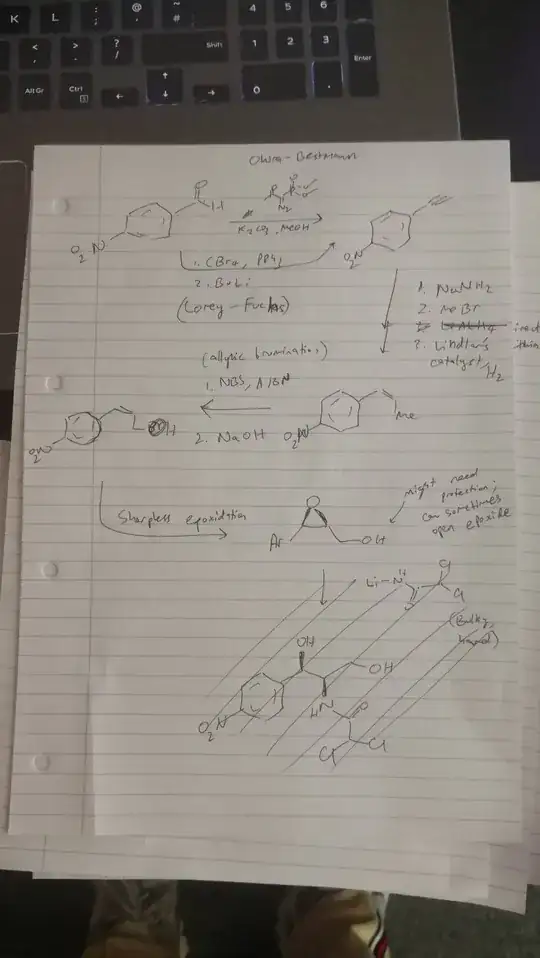 K L : ; @ ' ~ # 4 5 6
< , > . ? / Shift 1 2 3 Enter
Alt Gr Ctrl 0 .
Ohira-Bestmann
O
H
N2
O2N
K2CO3, MeOH
1. CBr4, PPh3
2. BuLi
(Corey-Fuchs)
NO2
1. NaNH2
2. MeBr
3. Lindlar's
catalyst/H2
(allylic bromination)
1. NBS, AIBN
2. NaOH
OH
O2N
O2N
Me
Sharpless epoxidation
O
Ar
OH
might need
protection,
can sometimes
open epoxide
Li-N
H
O
Cl
Cl
(Bulky,
hard)
OH
OH
O2N
HN
O
Cl
Cl